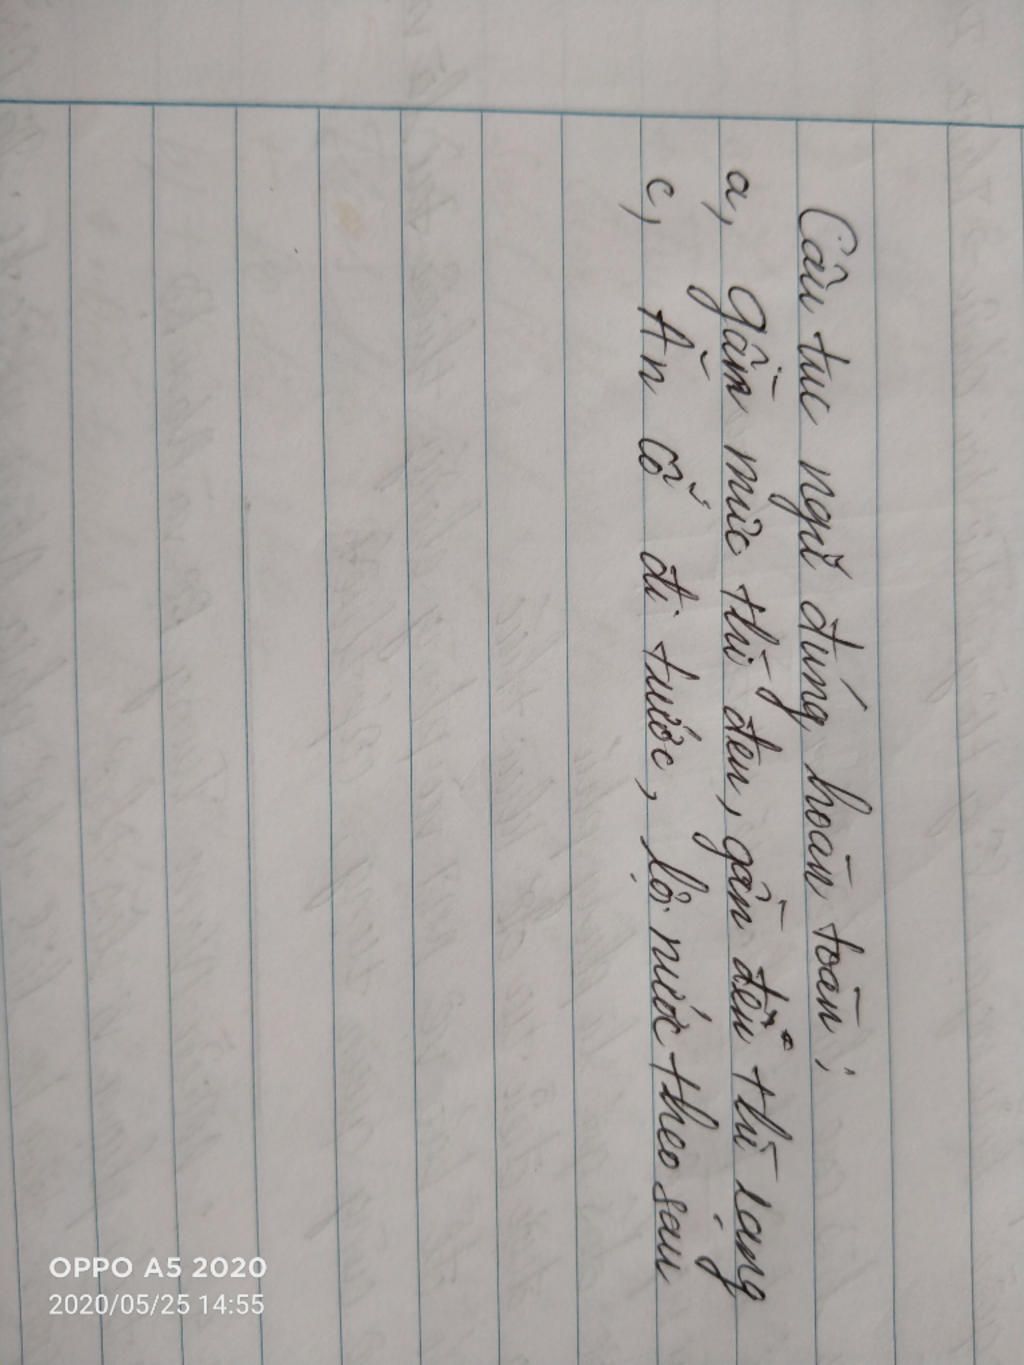 Câu tuc ngữ đúng hoàn toàn :
a, gần mức thì đen, gần đèn thì rạng
c, Ăn cỗ đi trước, lội nước theo sau
OPPO A5 2020
2020/05/25 14:55